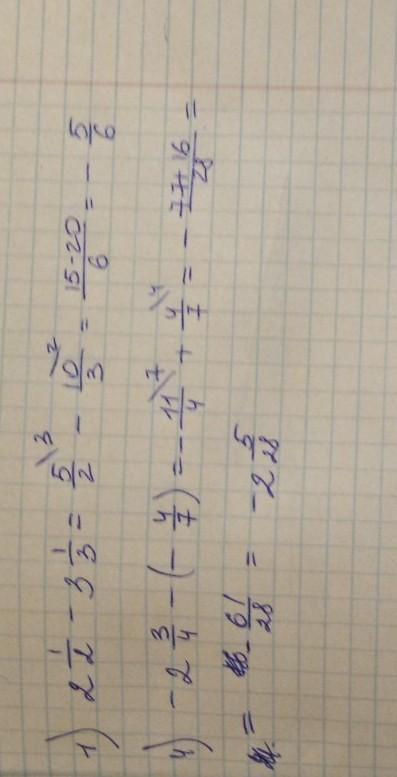 1) 2 1/2 - 3 1/3 = 5/2 \3 - 10/3 \2 = 15-20/6 = - 5/6
4) -2 3/4 - (- 4/7) = - 11/4 \7 + 4/7 \4 = - 77+16/28 =
= - 61/28 = -2 5/28